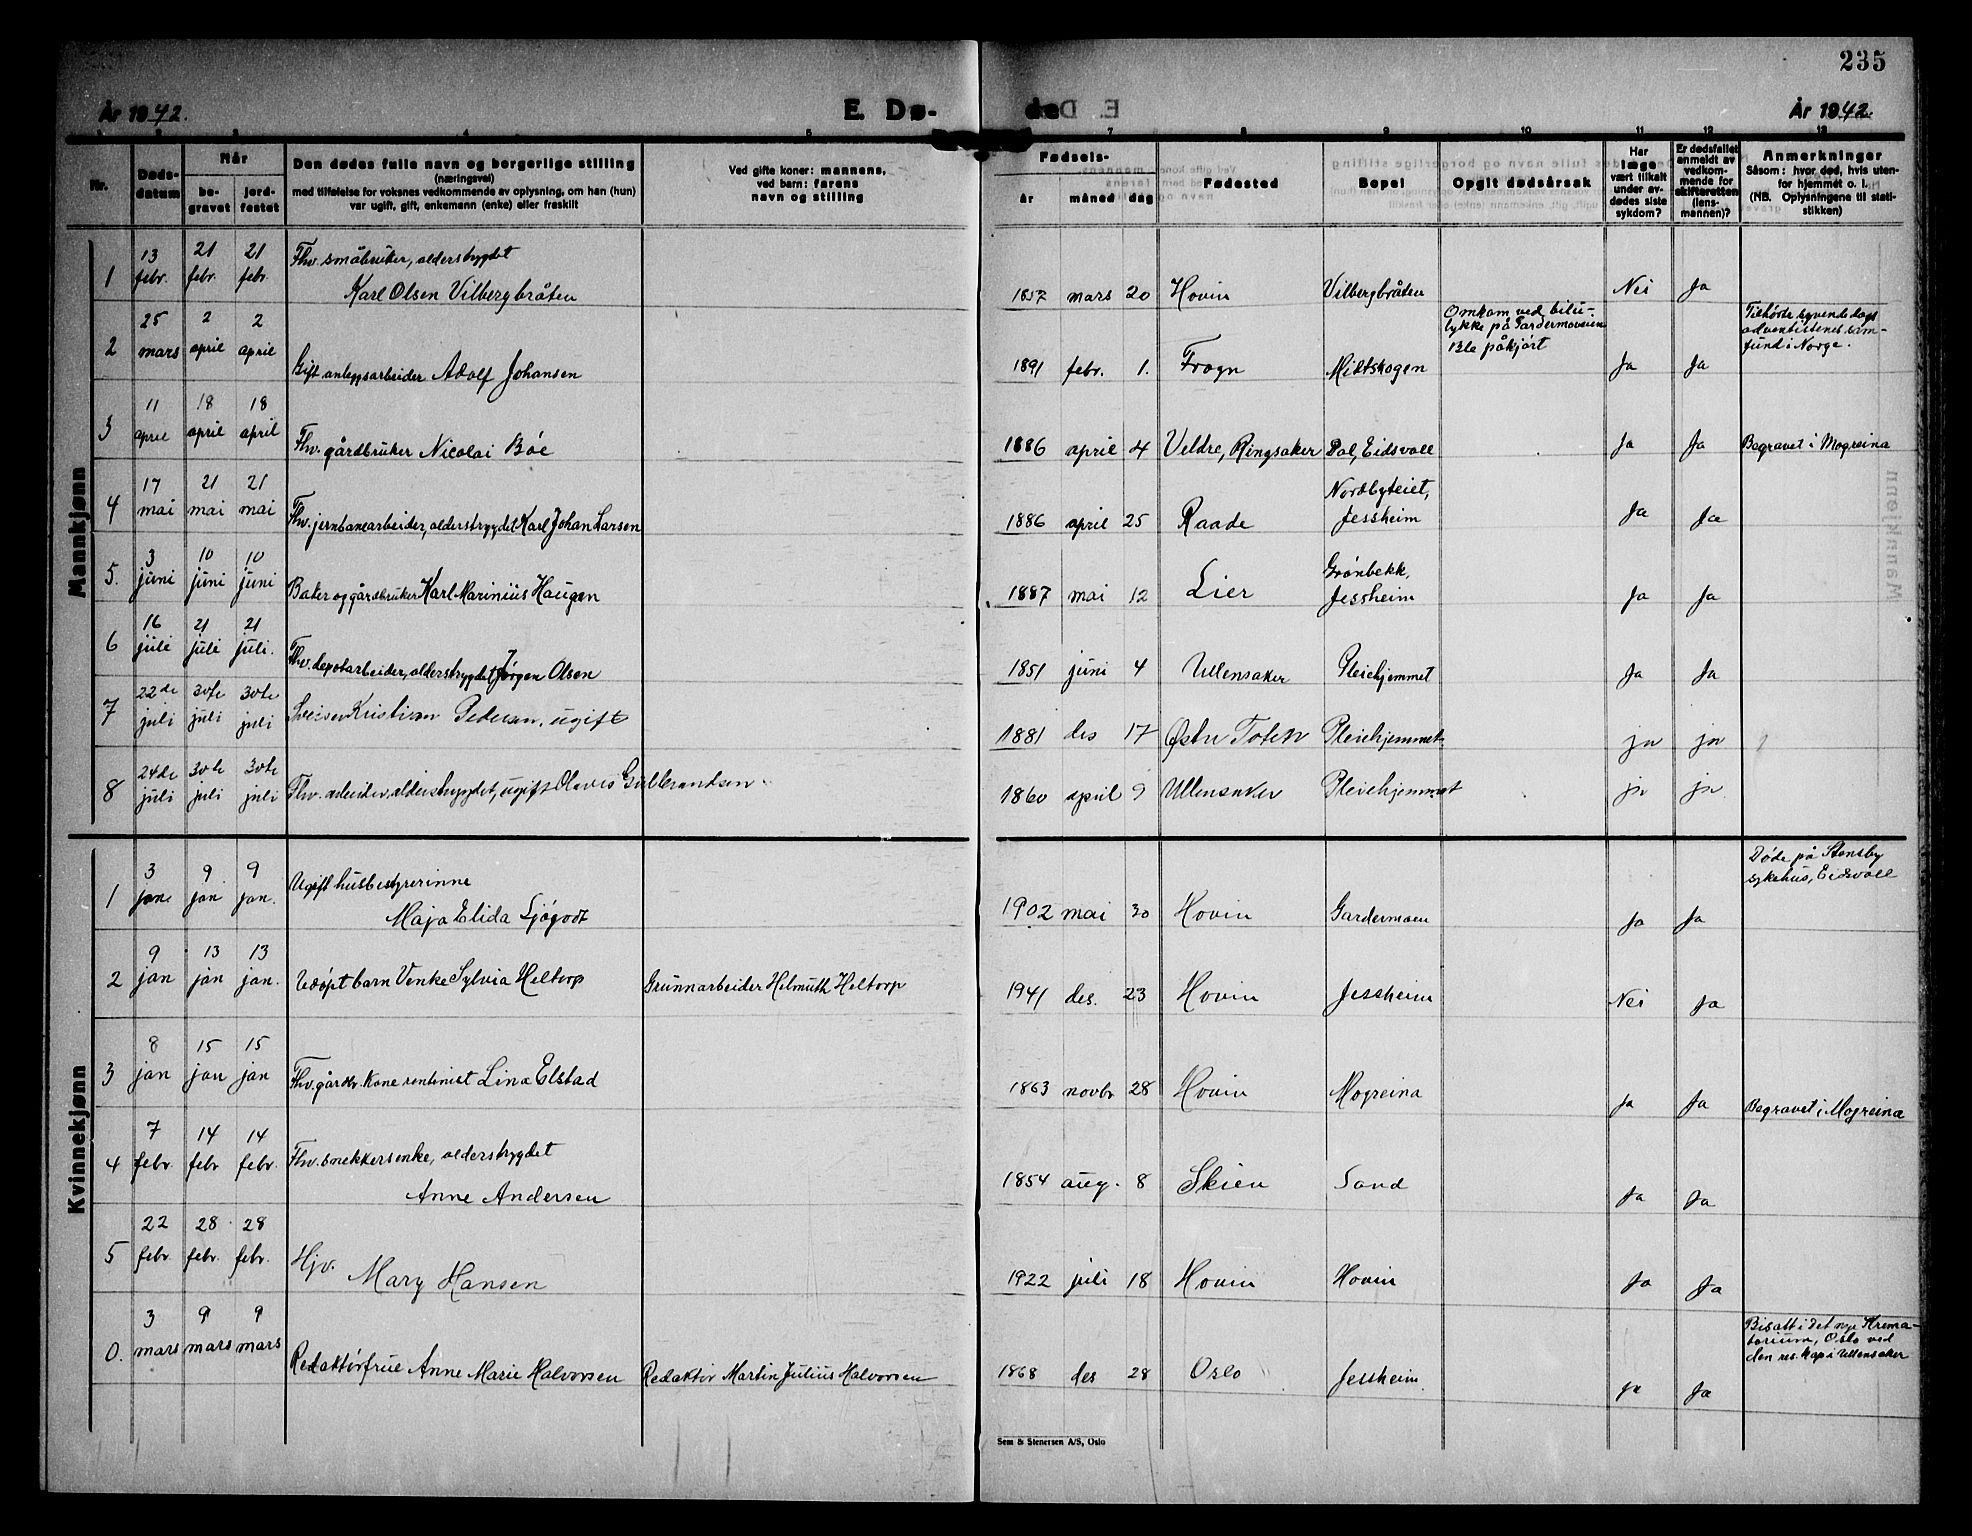 235
År 1942.
E. Dø-
de
År 1942
1 2 3 4 5
7 8 9 10 11 12 13
Nr.
Døds-
datum
Når
be-
gravet
jord-
festet
Den dødes fulle navn og borgerlige stilling
(næringsvei)
med tilføielse for voksnes vedkommende av oplysning, om han (hun)
var ugift, gift, enkemann (enke) eller fraskilt
Ved gifte koner: mannens,
ved barn: farens
navn og stilling
Fødsels-
år måned dag
Fødested
Bopel
Opgit dødsårsak
Har
læge
vært tilkalt
under av-
dødes siste
sykdom?
Er dødsfallet
anmeldt av
vedkom-
mende for
skifteretten
(lens-
mannen)?
Anmerkninger
Såsom: hvor død, hvis uten-
for hjemmet o. l.
(NB. Oplysningene til stati-
stikken)
Mannkjønn
1
13 febr. 21 febr. 21 febr.
Fhv. småbruker, alderstrygdet
Karl Olsen Vilbergbråten
1857 mars 20 Hovin Vilbergbråten Nei Ja
2
25 mars 2 april 2 april
Gift anleggsarbeider Adolf Johansen
1891 febr. 1. Frogn Midtskogen
Omkom ved bilu-
lykke på Gardermoveien
Ble påkjørt
Ja Ja
Tilhørte syvende dags
adventistenes sam-
fund i Norge.
3
11 april 18 april 18 april
Fhv. gårdbruker Nicolai Bøe
1886 april 4 Veldre, Ringsaker Dal, Eidsvoll Ja Ja Begravet i Mogreina
4
17 mai 21 mai 21 mai
Fhv. jernbanearbeider, alderstrygdet Karl Johan Larsen
1886 april 25 Raade
Nordbyteiet,
Jessheim
Ja Ja
5.
3 juni 10 juni 10 juni
Baker og gårdbruker Karl Marinius Haugen
1887 mai 12 Lier
Grønbekk,
Jessheim
Ja Ja
6
16 juli 21 juli 21 juli.
Fhv. depotarbeider, alderstrygdet Jørgen Olsen
1851 juni 4 Ullensaker Pleiehjemmet Ja Ja
7
22de juli 30te juli 30te juli
Kristian Pedersen, ugift
1881 des 17 Østre Toten Pleiehjemmet ja ja
8
24de juli 30te juli 30te juli
Fhv. arbeider, alderstrygdet, ugift Olaves Gulbrandsen
1860 april 9 Ullensaker Pleiehjemmet ja ja
Kvinnekjønn
1
3 jan 9 jan 9 jan.
Ugift husbestyrerinne
Maja Elida Sjøgodt
1902 mai 30 Hovin Gardermoen Ja Ja
Døde på Stensby
sykehus, Eidsvoll
2
9 jan 13 jan 13 jan.
Udøpt barn Venke Sylvia Heltorp
Grunnarbeider Helmuth Heltorp
1941 des. 23 Hovin Jessheim Nei Ja
3
8 jan 15 jan 15 jan
Fhv. gårdbr. kone rentenist Lina Elstad
1863 novbr 28 Hovin Mogreina Ja Ja Begravet i Mogreina
4
7 febr. 14 febr 14 febr.
Fhv. snekkersenke, alderstrygdet
Anne Andersen
1854 aug. 8 Skien Sand Ja Ja
5
22 febr. 28 febr. 28 febr.
Hjv.
Mary Hansen
1922 juli 18 Hovin Hovin Ja Ja
0.
3 mars 9 mars 9 mars
Redaktørfrue Anne Marie Halvorsen
Redaktør Martin Julius Halvorsen
1868 des 28 Oslo Jessheim Ja Ja
Bisatt i det nye Krema-
torium, Oslo ved
den res. kap i Ullensaker
Sem & Stenersen A/S, Oslo